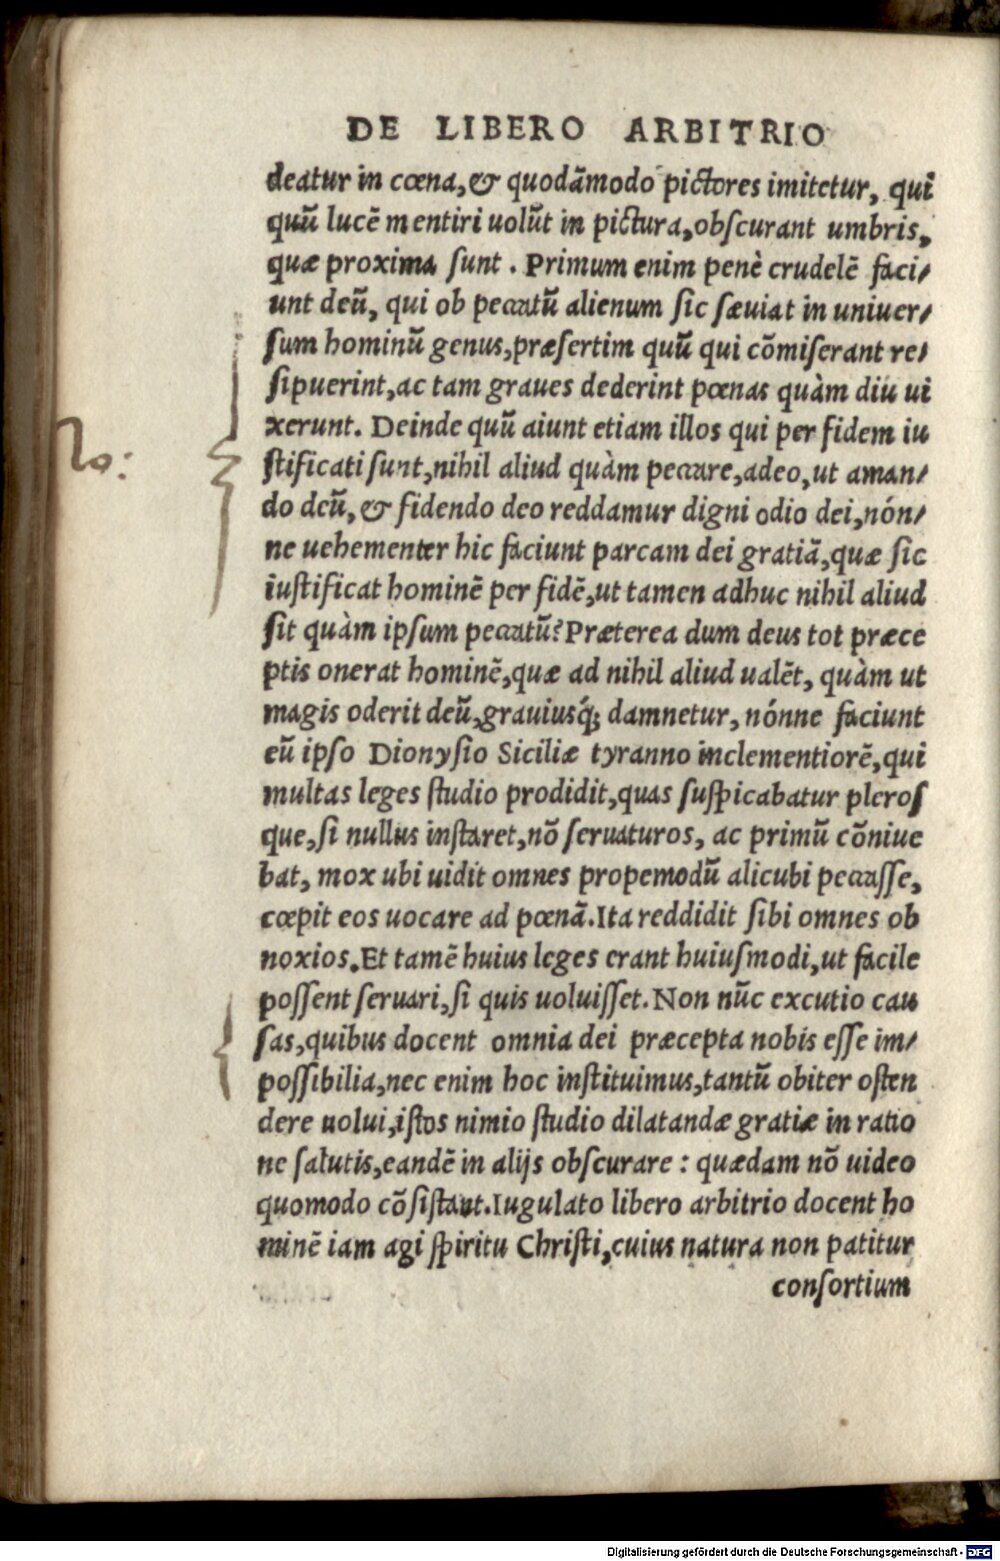 DE LIBERO ARBITRIO
deatur in cœna, & quodãmodo pictores imitetur, qui
quũ lucē mentiri uolũt in pictura, obſcurant umbris,
quæ proxima ſunt. Primum enim penè crudelē faci/
unt deũ, qui ob peccatũ alienum ſic ſæuiat in uniuer/
ſum hominũ genus, præſertim quũ qui cõmiſerant re/
ſipuerint, ac tam graues dederint pœnas quàm diu ui
xerunt. Deinde quũ aiunt etiam illos qui per fidem iu
ſtificati ſunt, nihil aliud quàm peccare, adeo, ut aman/
do deũ, & fidendo deo reddamur digni odio dei, nón/
ne uehementer hic faciunt parcam dei gratiã, quæ ſic
iuſtificat hominē per fidē, ut tamen adhuc nihil aliud
ſit quàm ipſum peccatũ? Præterea dum deus tot præce
ptis onerat hominē, quæ ad nihil aliud ualēt, quàm ut
magis oderit deũ, grauiusq́; damnetur, nónne faciunt
eũ ipſo Dionyſio Siciliæ tyranno inclementiorē, qui
multas leges ſtudio prodidit, quas ſuſpicabatur pleroſ
que, ſi nullus inſtaret, nõ ſeruaturos, ac primũ cõniue
bat, mox ubi uidit omnes propemodũ alicubi peccaſſe,
cœpit eos uocare ad pœnã. Ita reddidit ſibi omnes ob
noxios. Et tamē huius leges erant huiuſmodi, ut facile
poſſent ſeruari, ſi quis uoluiſſet. Non nũc excutio cau
ſas, quibus docent omnia dei præcepta nobis eſſe im/
poſſibilia, nec enim hoc inſtituimus, tantũ obiter oſten
dere uolui, iſtos nimio ſtudio dilatandæ gratiæ in ratio
ne ſalutis, eandē in alijs obſcurare: quædam nõ uideo
quomodo cõſiſtant. Iugulato libero arbitrio docent ho
minē iam agi ſpiritu Chriſti, cuius natura non patitur
conſortium
Digitalisierung gefördert durch die Deutsche Forschungsgemeinschaft - DFG